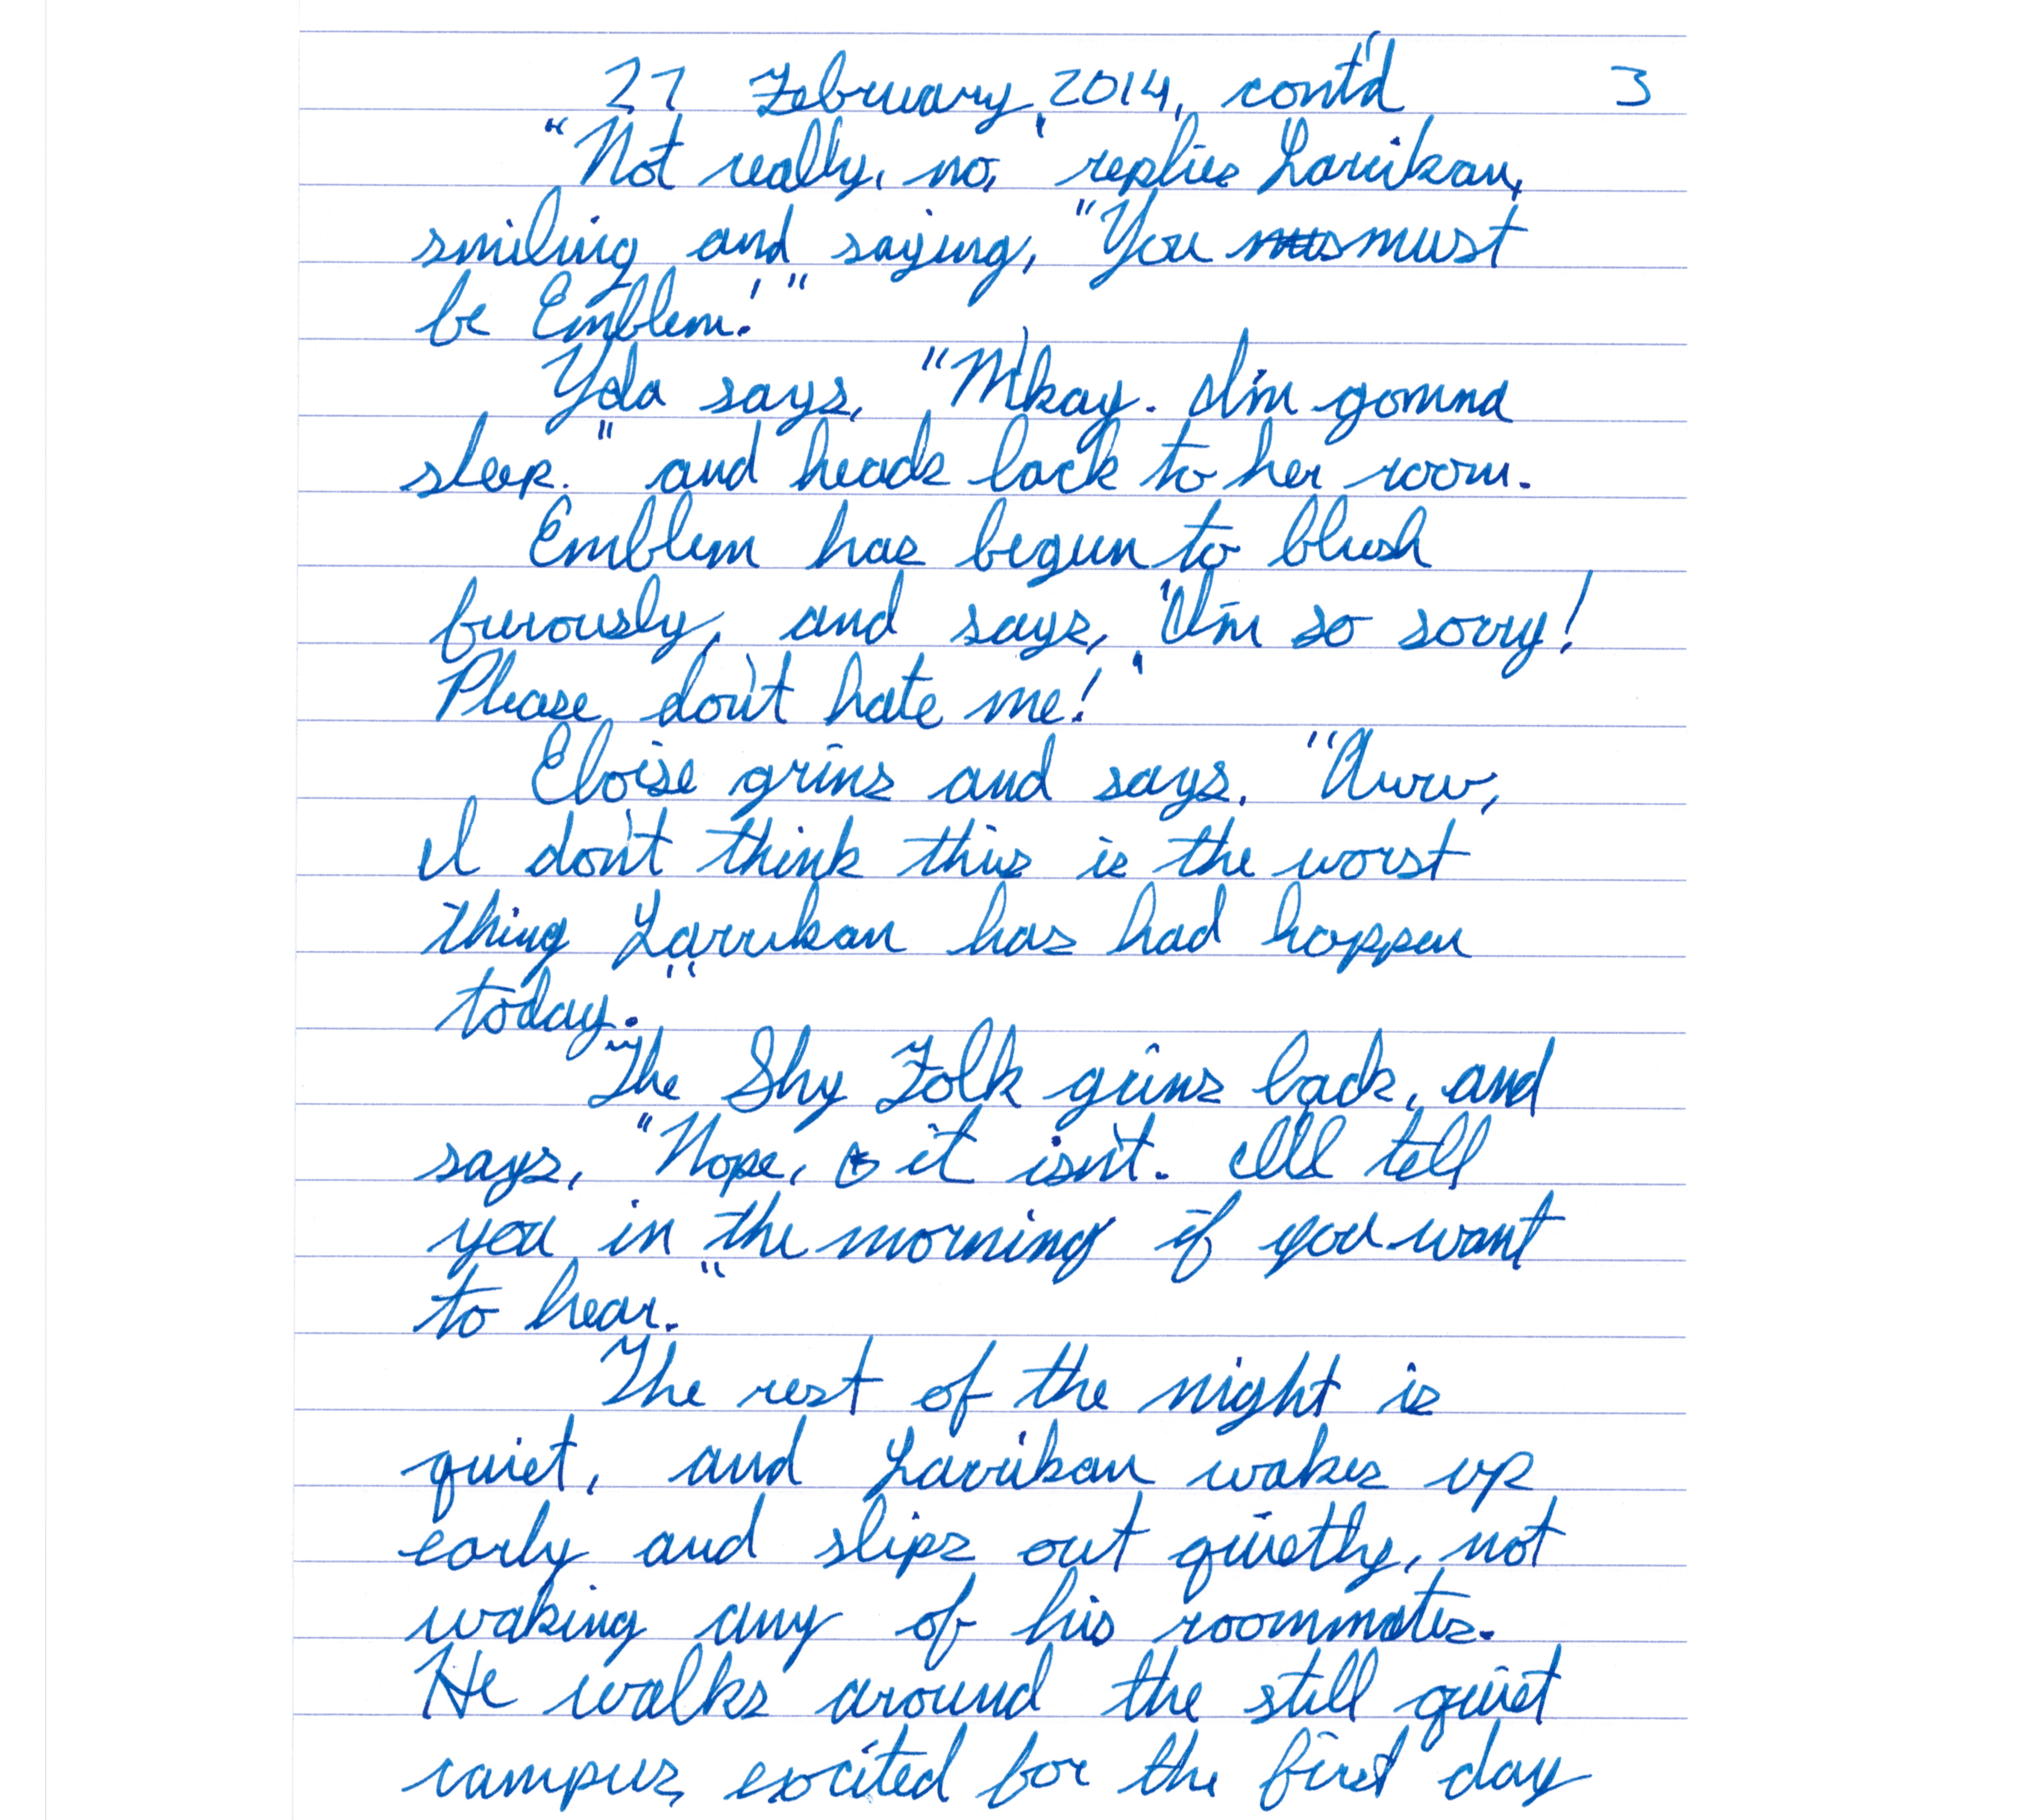 27 February, 2014, cont'd 3
"Not really, no," replies Larrikan,
smiling and saying, "You mus must
be Emblem!"
Yola says, "M'kay. I'm gonna
sleep." and heads back to her room.
Emblem has begun to blush
furously, and says, "I'm so sorry!
Please don't hate me!"
Eloise grins and says, "Aww,
I don't think this is the worst
thing Larrikan has had happen
today."
The Shy Folk grins back, and
says, "Nope, it isn't. I'll tell
you in the morning if you want
to hear."
The rest of the night is
quiet, and Larrikan wakes up
early and slips out quietly, not
waking any of his roommates.
He walks around the still quiet
campus, excited for the first day